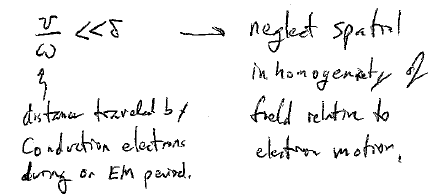 v/ω << δ → neglect spatial
inhomogeneity of
field relative to
electron motion.
distance traveled by
conduction electrons
during on EM period.